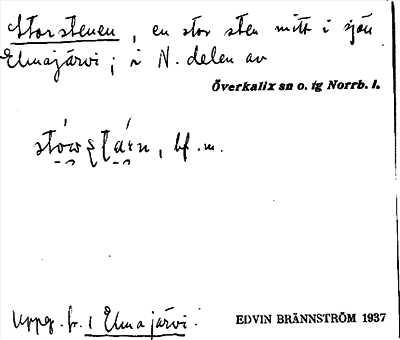 Storstenen, en stor sten mitt i sjön
Elmajärvi; i N. delen av
Överkalix sn o. tg Norrb. l.
bf. m.
Uppg. fr. Elmajärvi.
EDVIN BRÄNNSTRÖM 1937